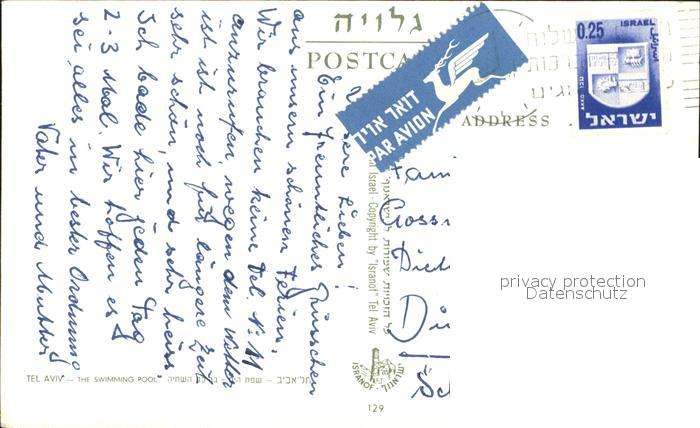 גלויה
POSTCA
ADDRESS
דואר אויר
PAR AVION
0.25 ISRAEL
AKKO עכו
ישראל
Lieben!
Ein freundliches Grüsschen
aus unsern schönen Ferien.
Wir brauchen keine Tel. Nr. 11
anzurufen, wegen dem Wetter
ist ist noch für längere Zeit
sehr schön, und sehr heiss
Ich bade hier jeden Tag
2-3 Mal. Wir hoffen es
sei alles in bester Ordnung
Vater und Mutter
Fam
Goss
Dich
Dü
privacy protection
Datenschutz
כל הזכויות שמורות
Israel - Copyright by "Isranof" Tel Aviv
ISRANOF
TEL AVIV — THE SWIMMING POOL תל-אביב — שפת הים
129